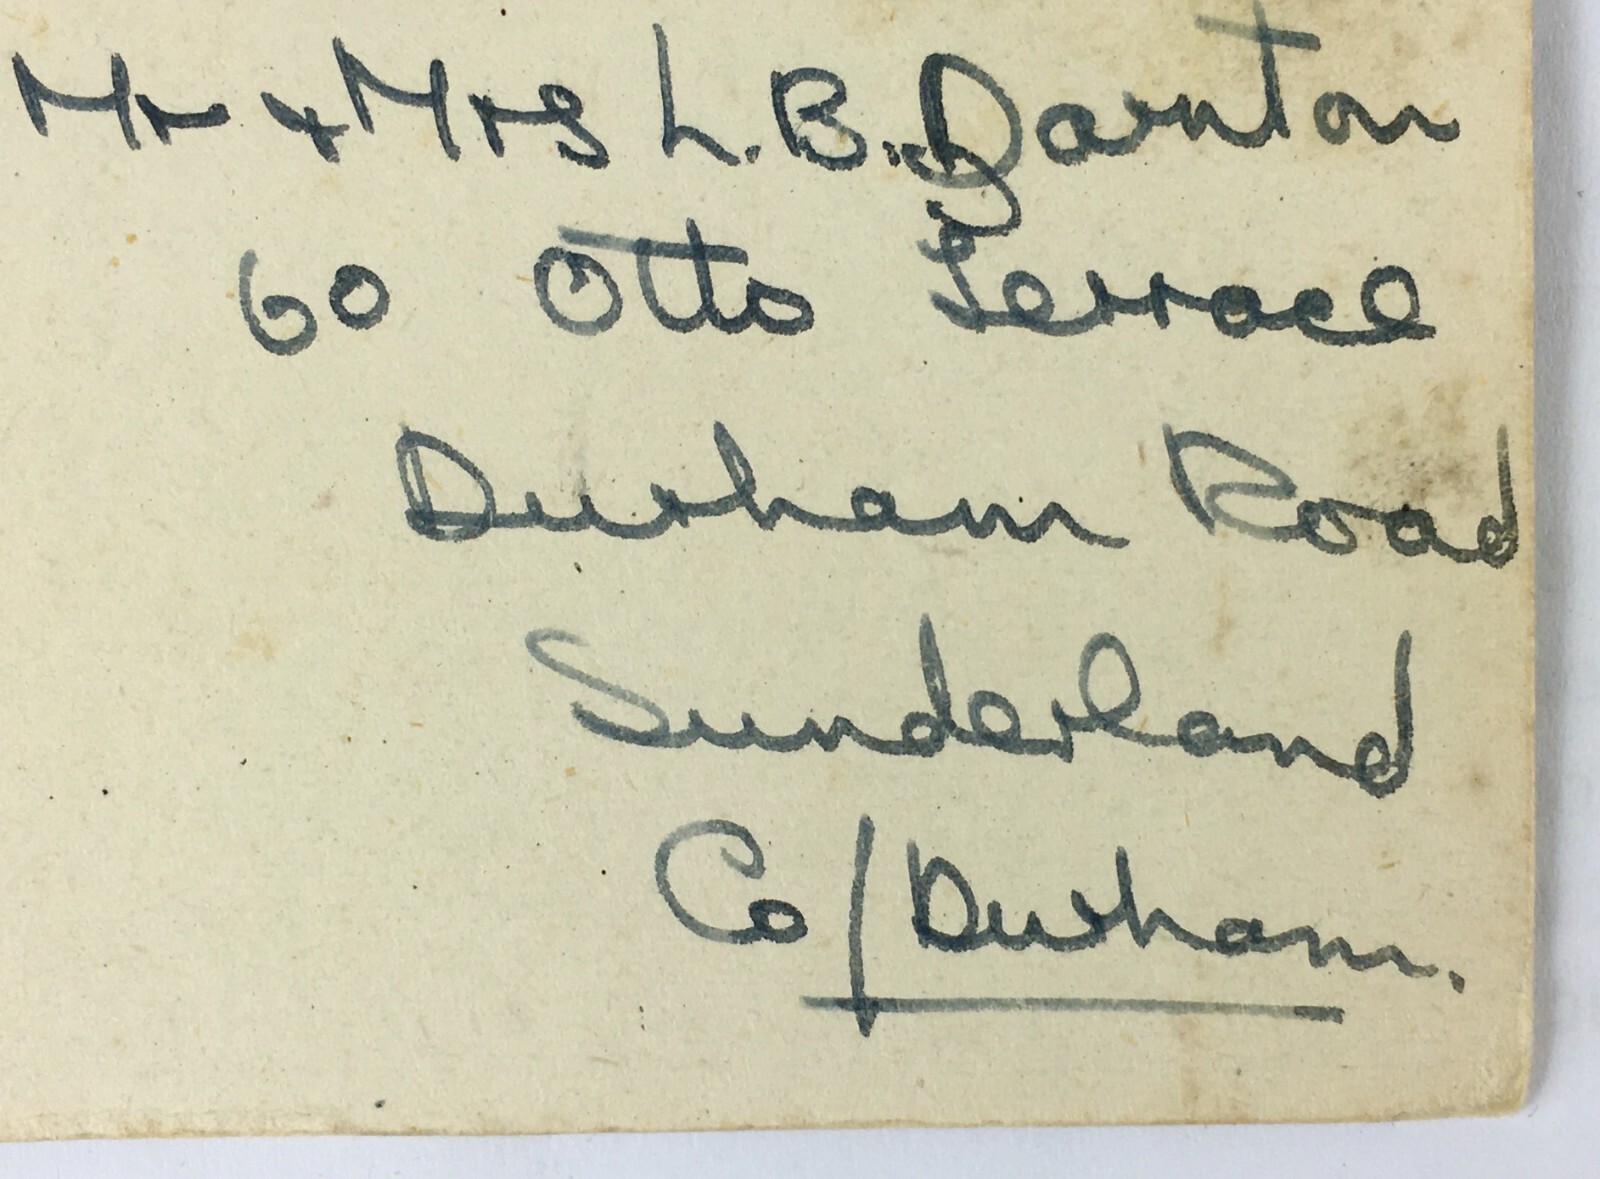 Mr & Mrs L.B. Darnton
60 Otto Terrace
Durham Road
Sunderland
Co/Durham.